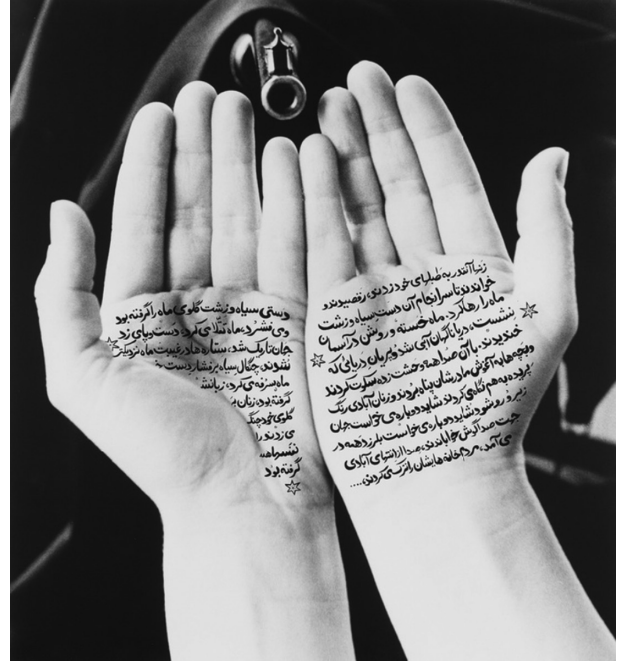 دستی سیاه و زشت گلوی ماه را گرفته بود
می فشرد، ماه تقلا می کرد، دست و پای زد
تاریک شد، ستاره ها در غیبت ماه
نشوند، چنگال سیاه بر فشار دست
ماه سرفه می کرد، زبانش
گرفته بود، زنان
گلوی خود چنگ
می زدند
گرفته بود
زنها آنقدر به طبلهای خود زدند، رقصیدند و
خواندند تا سرانجام آن دست سیاه و زشت
ماه را رها کرد. ماه خسته و روشن در آسمان
نشست، دریا ناگهان آبی شد و پریان دریائی که
خندیدند. با آن صدا همه وحشت زده سکوت کردند
و بچه ها به آغوش مادرشان پناه بردند و زنان آبادی رنگ
پریده به هم نگاهی کردند شاید دوباره می خواست جهان
زیر و رو شود شاید دوباره می خواست بلرزد همه در
صدا گوش خواباندند، صدا از انتهای آبادی
می آمد. مردم خانه هایشان را ترک می کردند،....